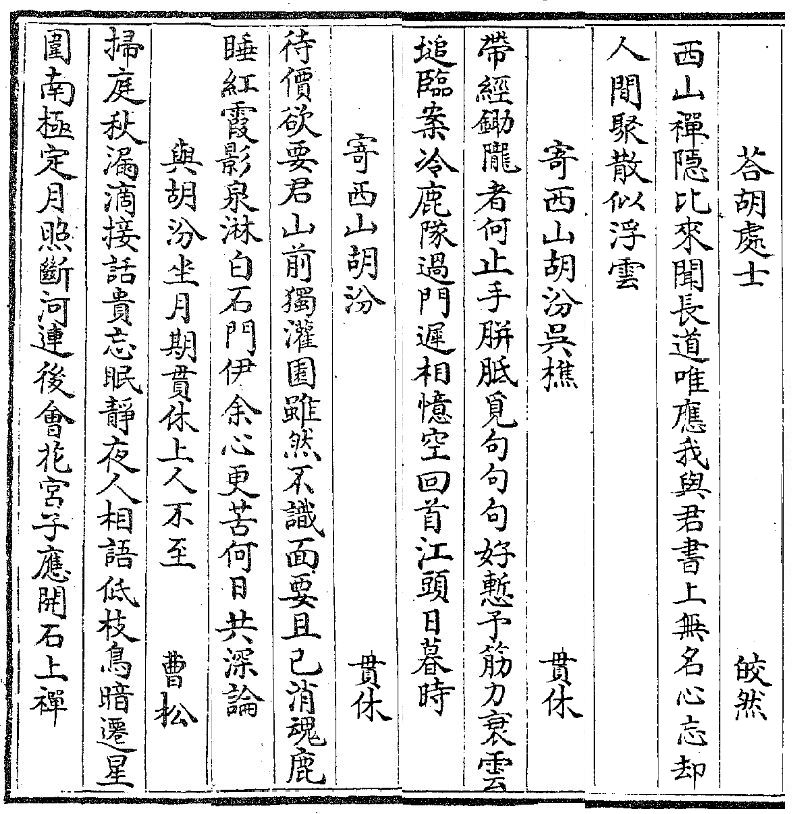 荅胡處士　皎然
西山禪隱比來聞長道唯應我與君書上無名心忘却
人間聚散似浮雲
寄西山胡汾吳樵　貫休
帶經鋤隴者何止手胼胝覓句句句好慙予筋力衰雲
埴臨案冷鹿隊過門遲相憶空回首江頭日暮時
寄西山胡汾　貫休
待價欲要君山前獨灌園雖然不識面要且已消魂鹿
睡紅霞影泉淋白石門伊余心更苦何日共深論
與胡汾坐月期貫休上人不至　曹松
掃庭秋漏滴接話貴忘眠靜夜人相語低枝鳥暗遷星
圍南極定月照斷河連後會花宮子應開石上禪